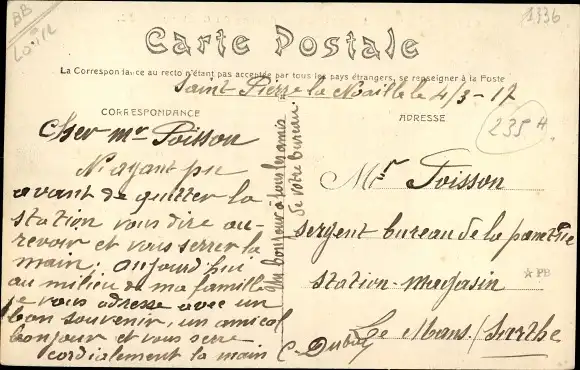 BB
1336
Carte Postale
La Correspondance au recto n'étant pas acceptée par tous les pays étrangers, se renseigner à la Poste
Saint Pierre la Noaille le 4/3-17
CORRESPONDANCE
Cher mr Poisson
N'ayant pu
avant de quitter la
station vous dire au-
revoir et vous serrer la
main. aujourd'hui
au milieu de ma famille
je vous adresse avec un
bon souvenir, un amical
bonjour et vous serre
cordialement la main
C. Dubuy
un bonjour à tous les amis
de votre bureau.
ADRESSE
235 H
Mr. Poisson
sergent bureau de la
station-magasin
Le Mans/Sarthe
PB